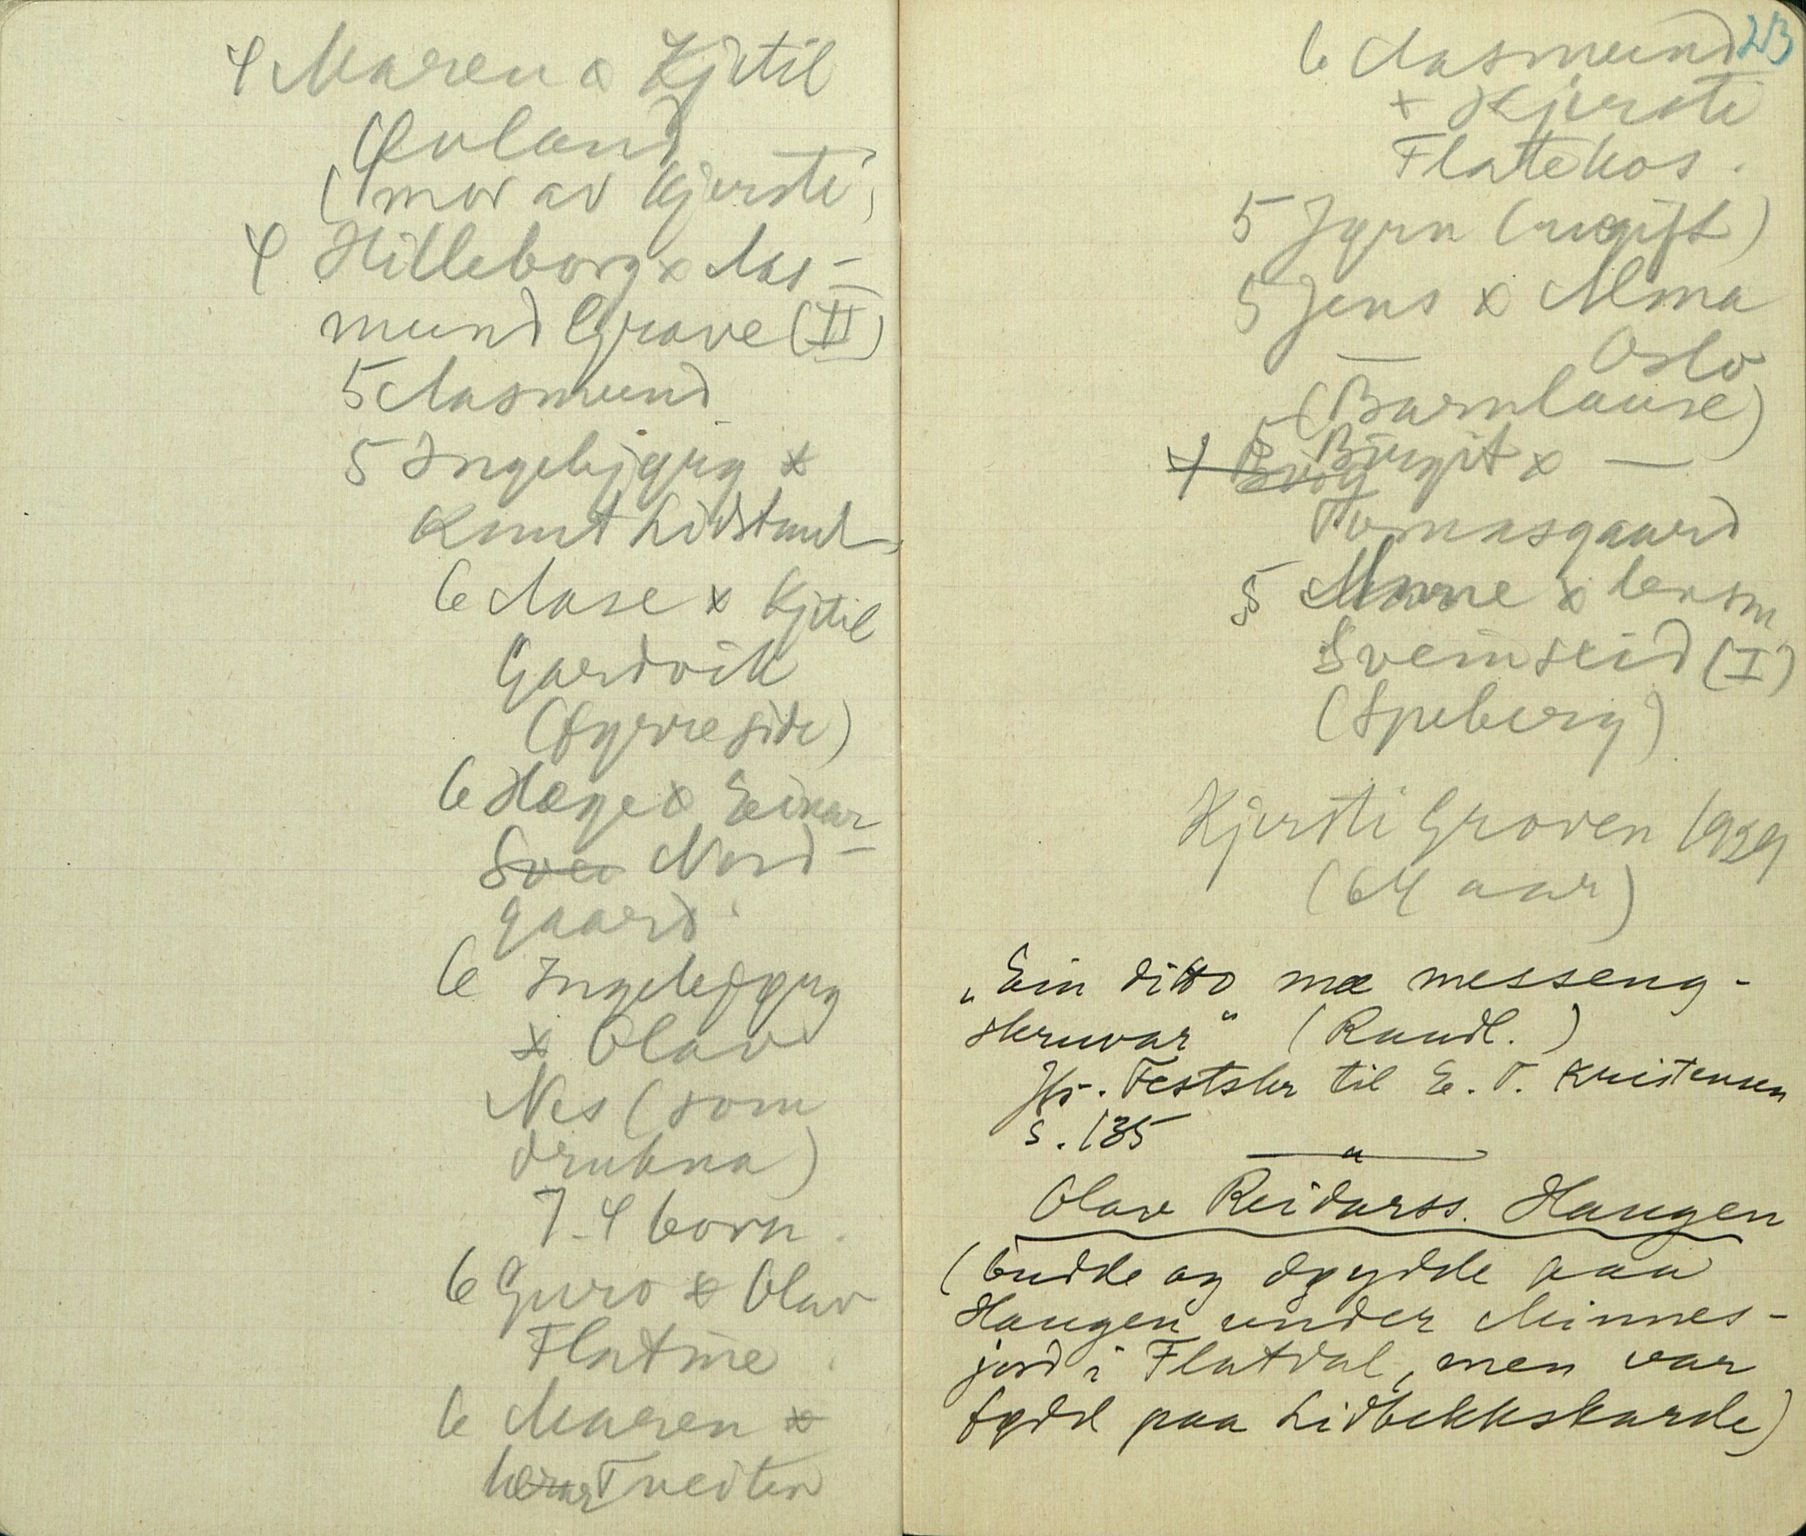 4 Maren x Kjetil
Øvland
(mor av Kjersti)
4 Hilleborg x Aas-
mund Grave (II)
5 Aasmund
5 Ingebjørg x
Knut Lidstaul
6 Aase x Kjetil
Gardvik
(fyrresdi)
6 Hæge x Einar
Svei Nord-
gaard.
6 Ingebjørg
x Olav
Nes (som
drukna)
7. 4 born.
6 Guro x Olav
Flatine.
6 Maren x
Tveiten
213
6 Aasmund
x Kjersti
Flatekos.
5 Jørn (ugift)
5 Jens x Alma
— Oslo
(Barnlause)
5 Birgit x —
Tomasgaard
5 Anne x
Sveinseid (I)
(Speberg)
Kjersti Groven 1939
(64 aar)
„Ein ditto mæ messeng-
skruvar" (Raudl.)
Jfr. Festskr til E. T. Kristensen
s. 135
Olav Reidarss. Haugen
(budde og døydde paa
Haugen under Minnes-
jord i Flatdal, men var
fødd paa Lidbekkskarde)